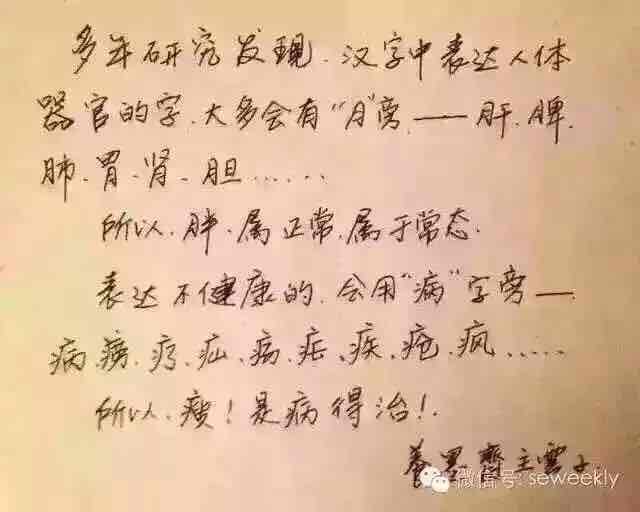 多年研究发现.汉字中表达人体
器官的字.大多会有“月”旁.——肝.脾.
肺.胃.肾.胆......
所以.胖.属正常.属于常态.
表达不健康的.会用“病”字旁——
病.痨.疗.疝.疟.疾.疮.疯.....
所以.瘦!是病得治!.
养墨齋主雲子
微信号: seweekly